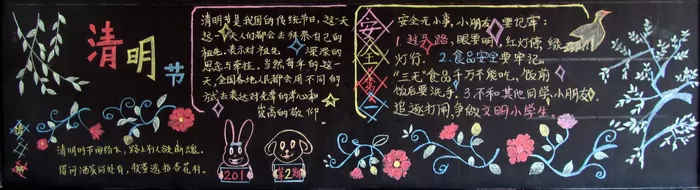 清明节
清明节是我国的传统节日,这一天
这一天人们都会去拜祭自己的
祖先,表示对祖先 深深的
思念与牵挂。当然每年的这一
天,全国各地人民都会用不同的
方式去表达对先辈的孝心和
崇高的敬仰
清明时节雨纷纷,路上行人欲断魂。
借问酒家何处有,牧童遥指杏花村。
201
第2期
安全
第一
安全无小事,小朋友 要记牢:
1.过马路,眼要明,红灯停,绿
灯行。2.食品安全要牢记。
"三无"食品千万不能吃,饭前
饭后要洗手。3.不和其他同学、小朋友
追逐打闹,争做文明小学生。